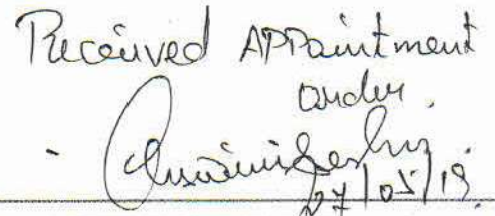 Received APPointment
order.
27/05/19